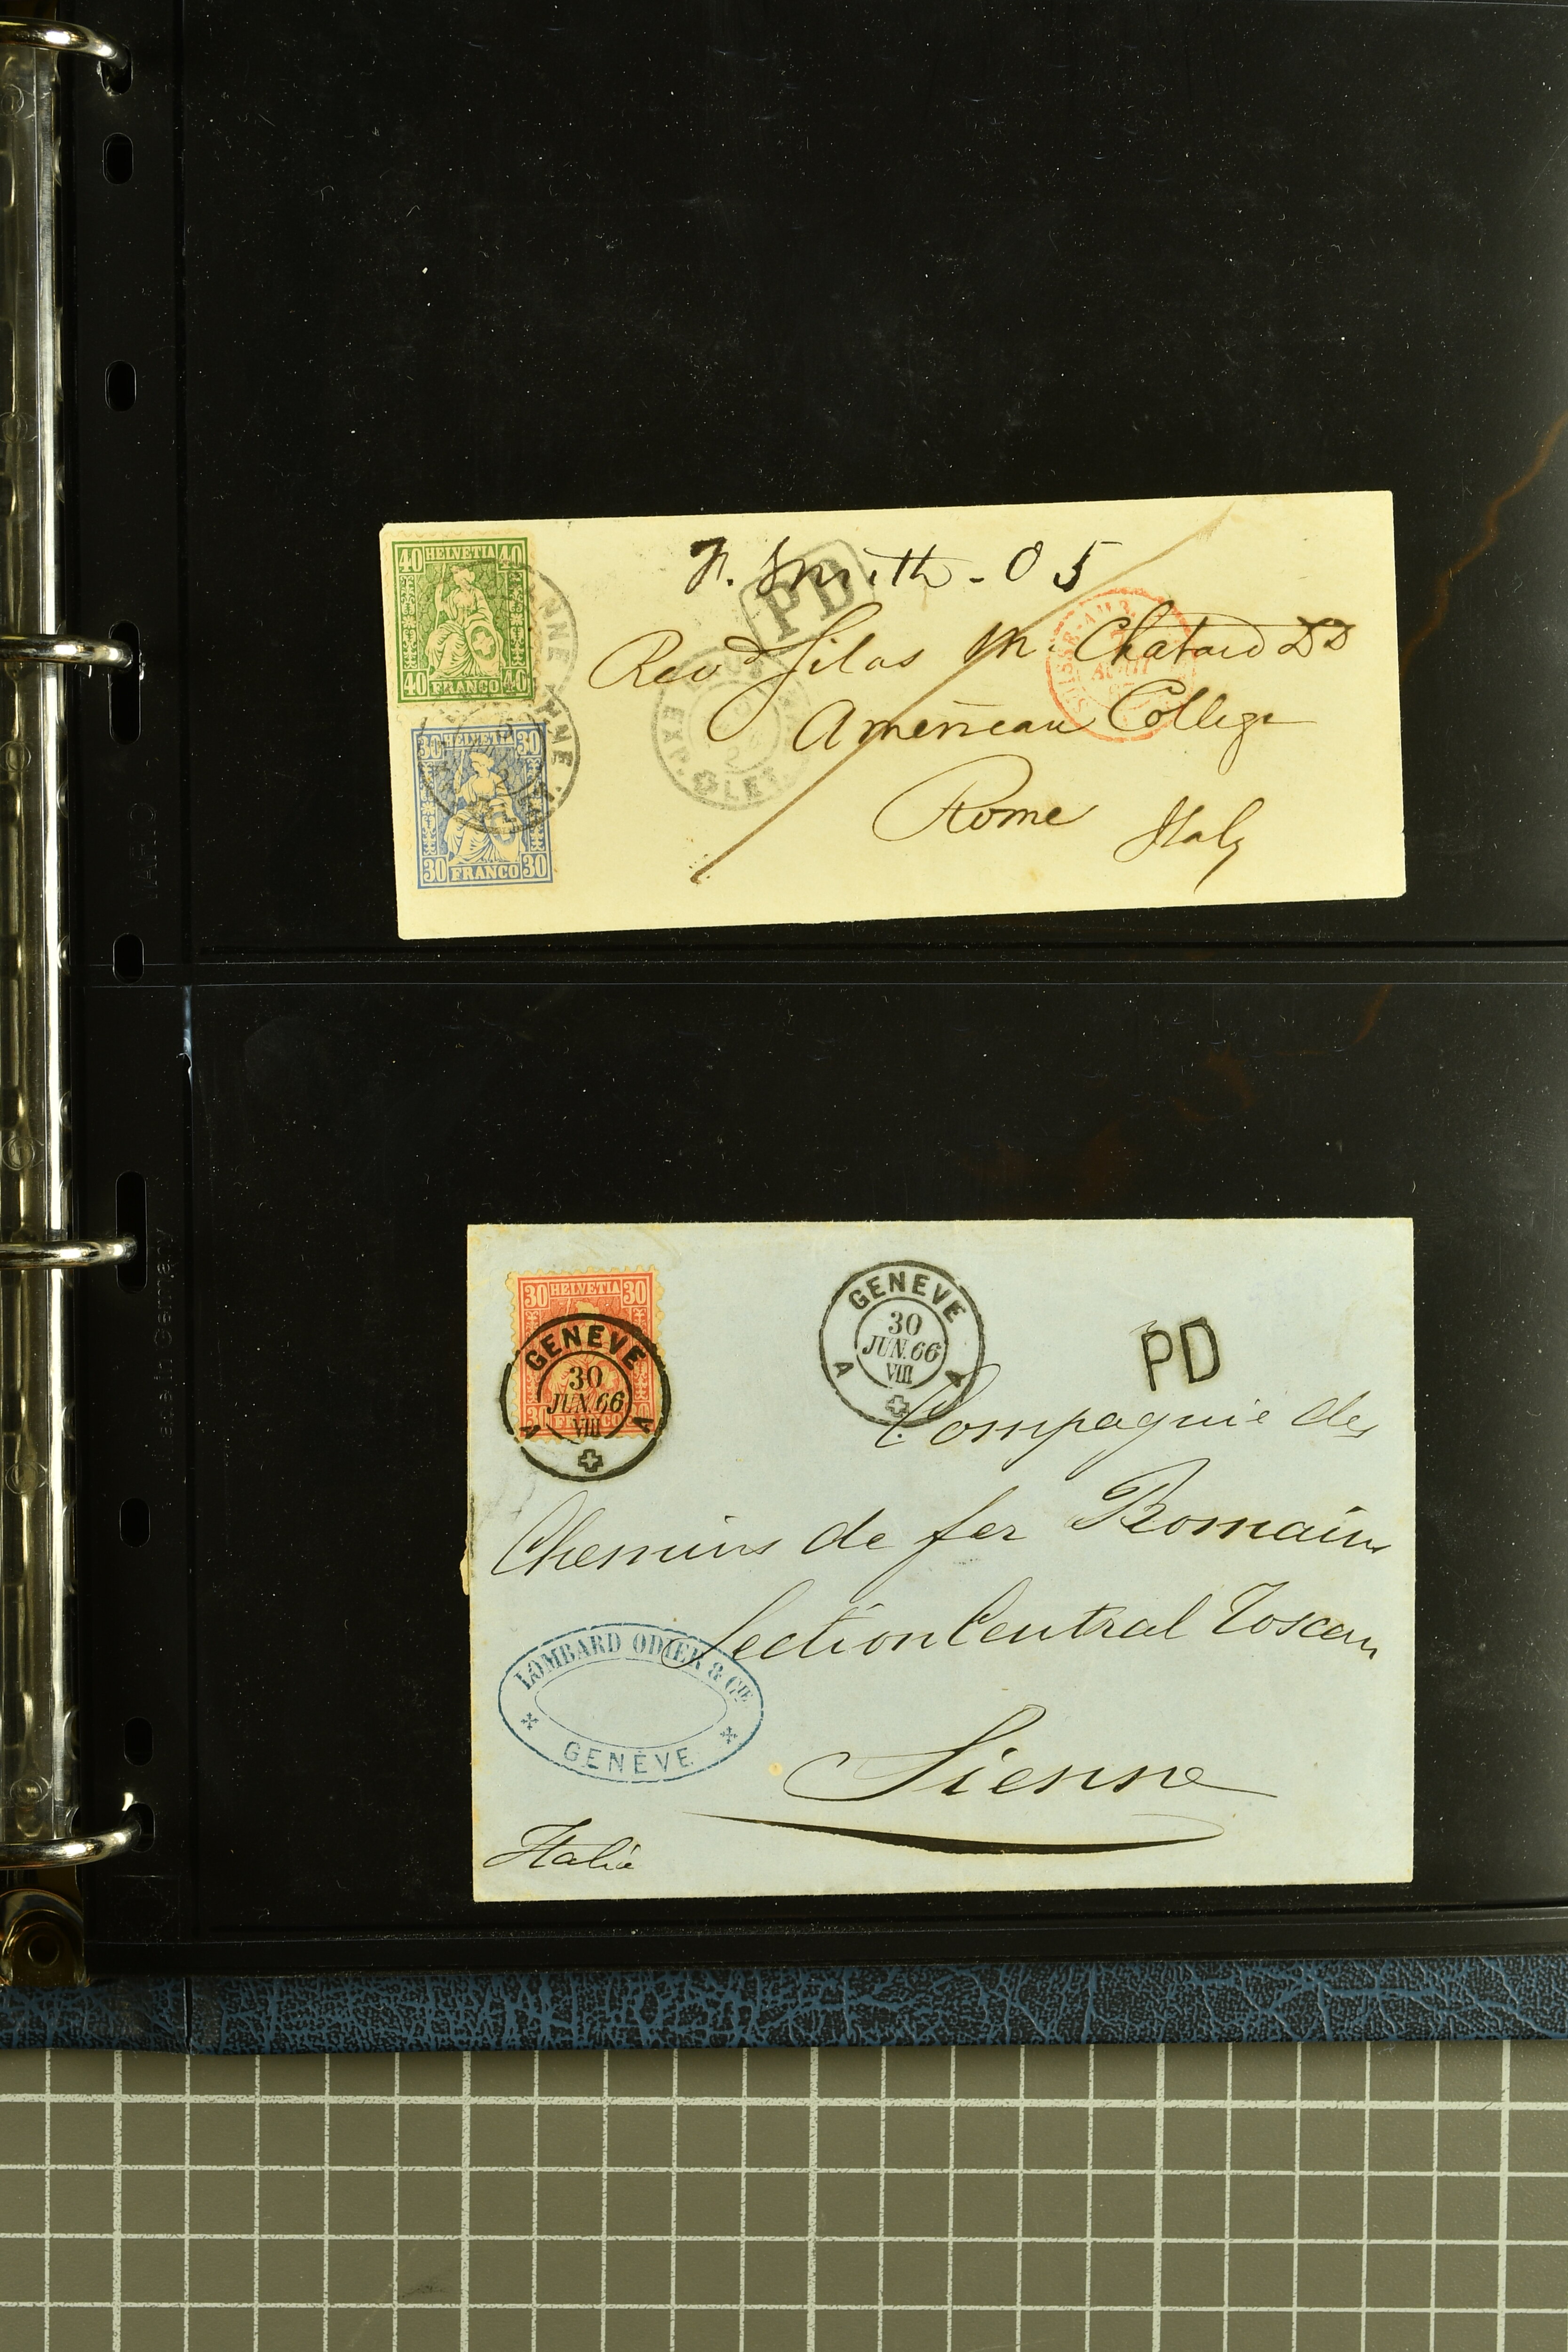 40 HELVETIA 40
40 FRANCO 40
30 HELVETIA 30
30 FRANCO 30
PD
Smith - 05
Revd Silas M. Chatard DD
American College
Rome Italy
EXP. LET.
30 HELVETIA 30
30 FRANCO 30
GENEVE
30
JUN. 66
VIII
A A
GENEVE
30
JUN. 66
VIII
A A
PD
Compagnie des
Chemins de fer Romains
Section Central Toscan
Sienne
Italie
LOMBARD ODIER & CIE
GENÈVE
VARIO
Made in Germany